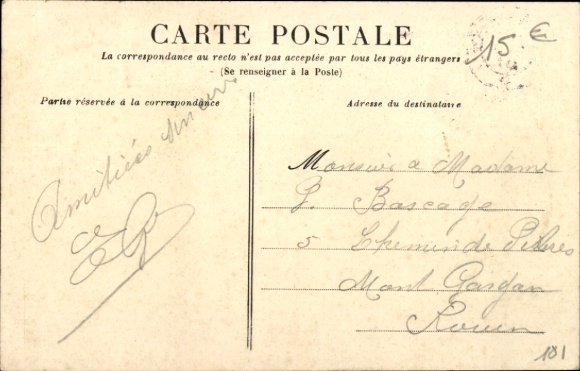 CARTE POSTALE
La correspondance au recto n'est pas acceptée par tous les pays étrangers
(Se renseigner à la Poste)
15 €
Partie réservée à la correspondance
Adresse du destinataire
Amitiées
Monsieur & Madame
Bascage
5 Chemin de
Mont Gargan
Rouen
181